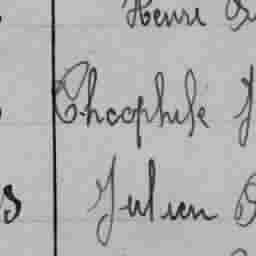 Henri
Théophile
Julien